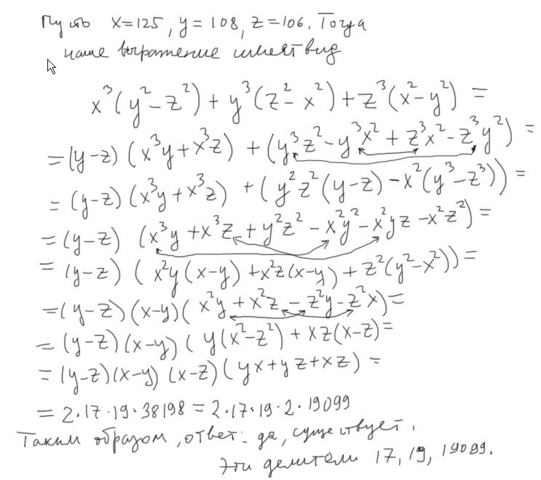 Пусть x=125, y=108, z=106. Тогда
наше выражение имеет вид
x³(y²-z²) + y³(z²-x²) + z³(x²-y²) =
= (y-z) (x³y+x³z) + (y³z²-y³x² + z³x²-z³y²) =
= (y-z) (x³y+x³z) + (y²z²(y-z) -x²(y³-z³)) =
= (y-z) (x³y+x³z + y²z² -x²y² -x²yz -x²z²) =
= (y-z) ( x²y(x-y) +x²z(x-y) + z²(y²-x²)) =
=(y-z)(x-y)( x²y + x²z - z²y - z²x) =
= (y-z)(x-y) ( y(x²-z²) + xz(x-z) =
= (y-z)(x-y) (x-z) (yx+yz+xz) =
= 2·17·19·38198 = 2·17·19·2·19099
Таким образом, ответ: да, существует.
Эти делители 17, 19, 19099.